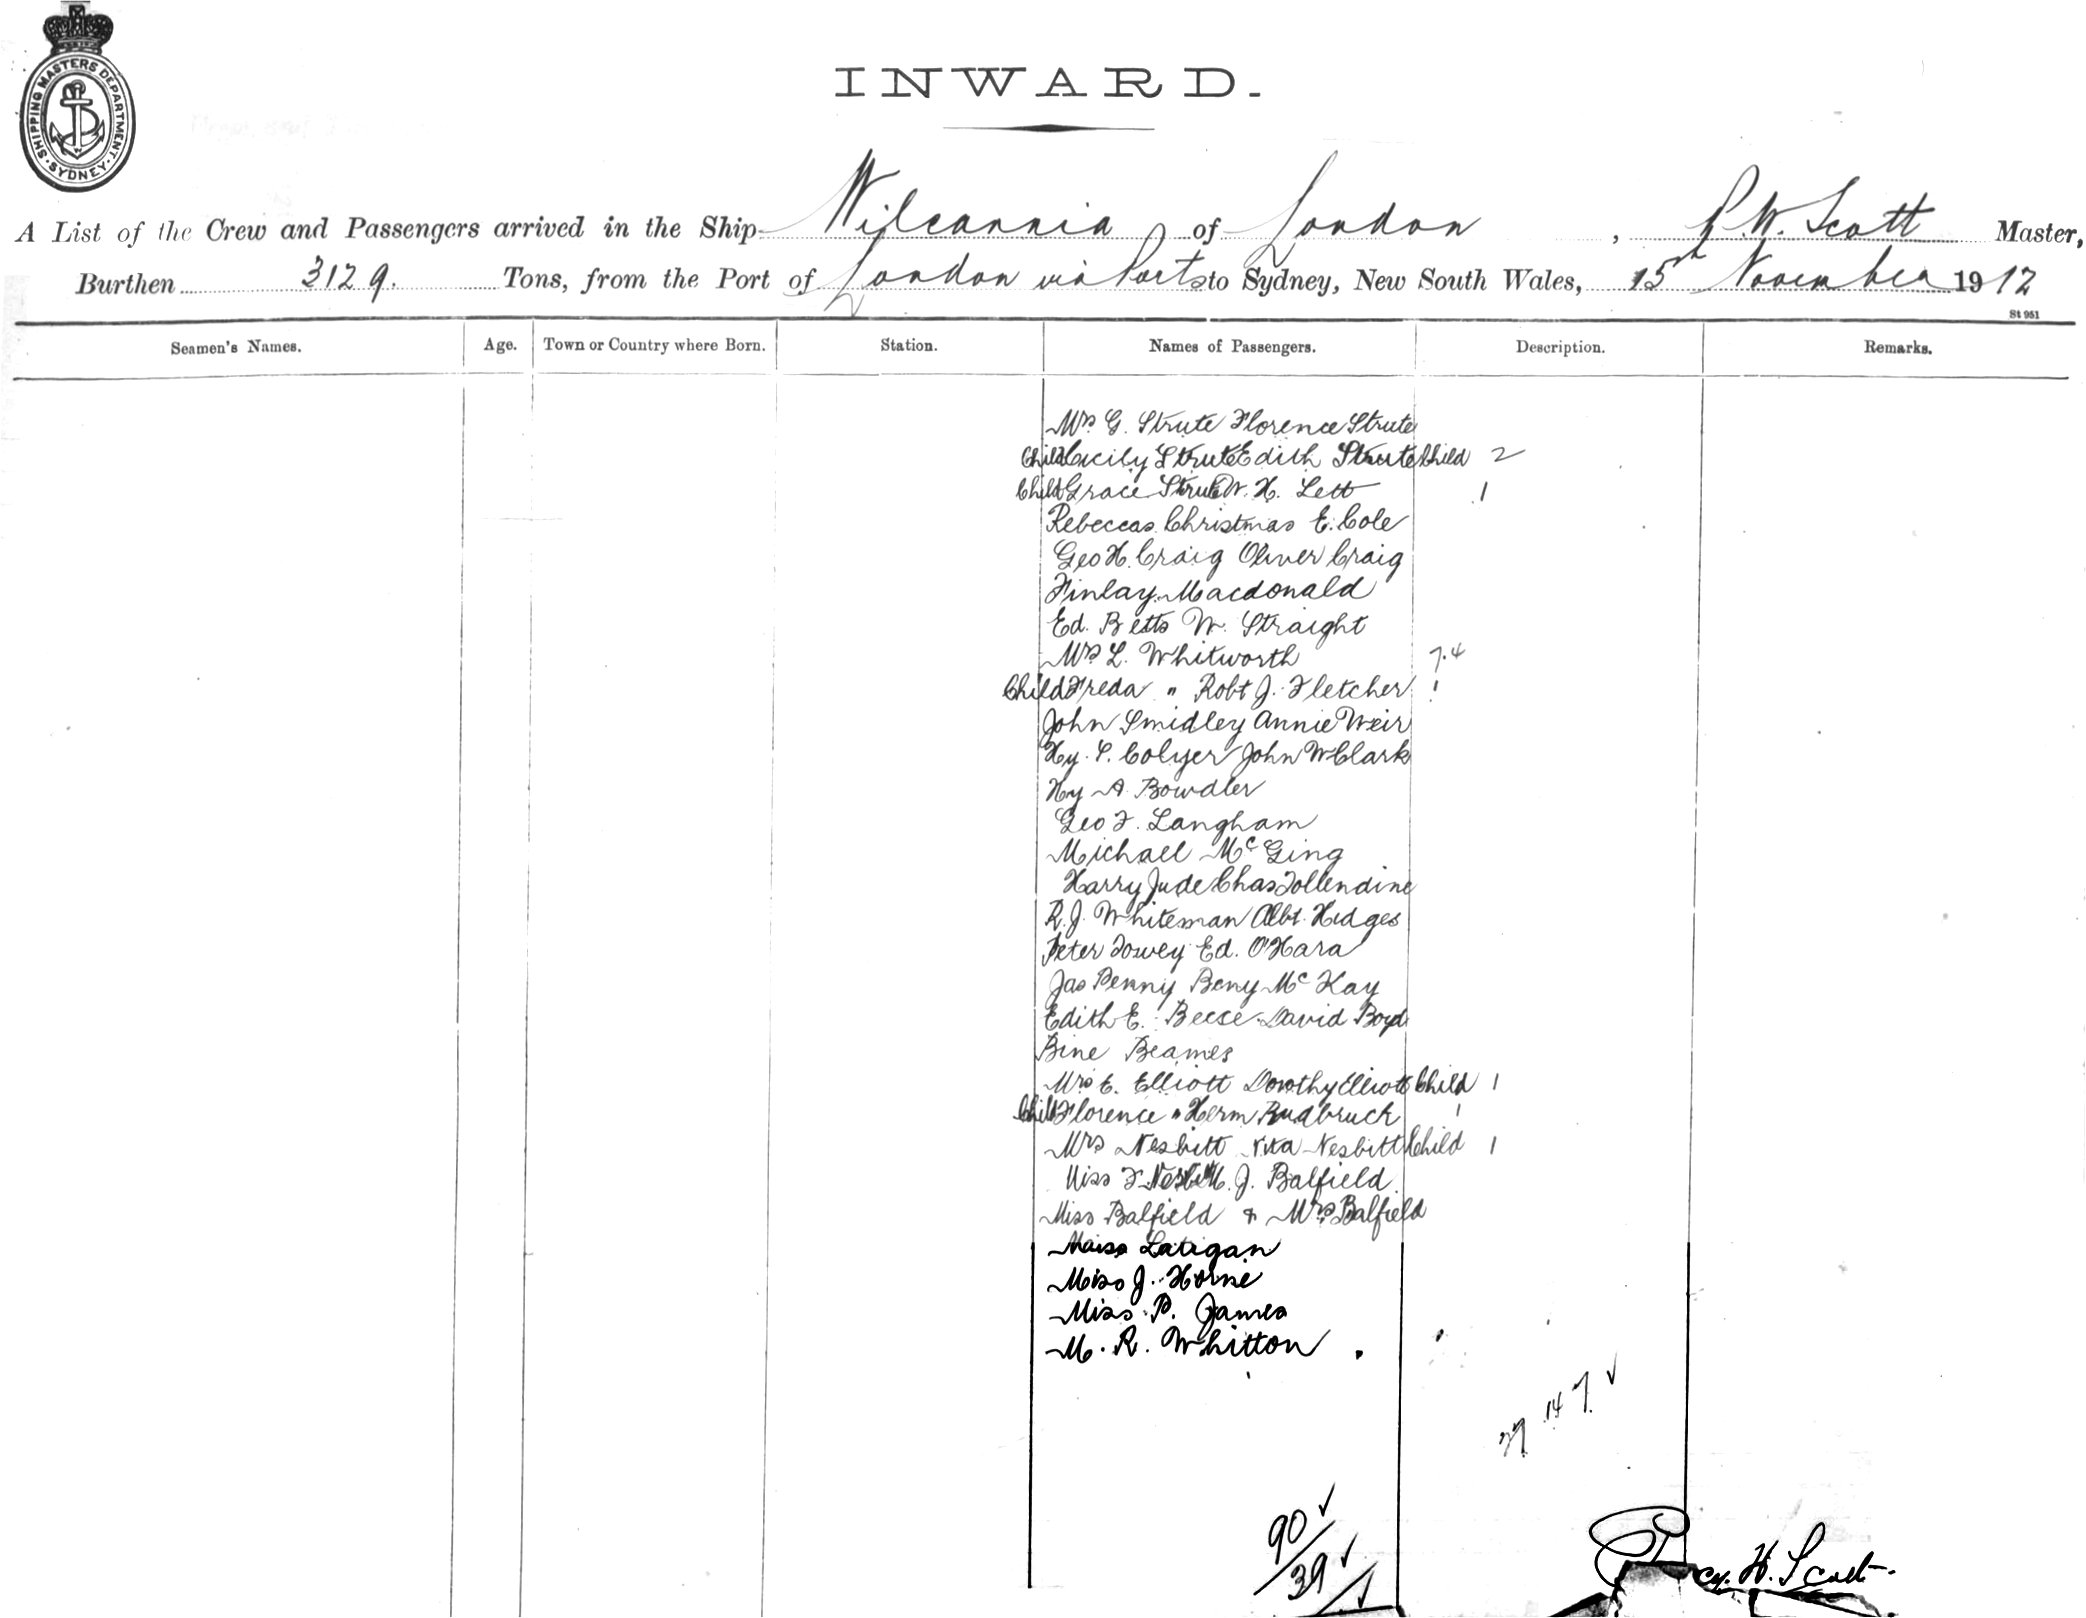 SHIPPING MASTERS DEPARTMENT. SYDNEY
INWARD.
A List of the Crew and Passengers arrived in the Ship Wilcannia of London, P. W. Scott Master,
Burthen 3129. Tons, from the Port of London via Ports to Sydney, New South Wales, 15th November 1912
St 951
Seamen's Names. Age. Town or Country where Born. Station. Names of Passengers. Description. Remarks.
Mrs G. Strute Florence Strute
Child Cicily Strute Edith Strute Child 2
Child Grace Strute W. H. Lett 1
Rebecca Christmas E. Cole
Geo H. Craig Oliver Craig
Finlay Macdonald
Ed. Betts W. Straight
Mrs L. Whitworth 7.4
Child Freda " Robt J. Fletcher 1
John Smidley Annie Weir
Hy. S. Colyer John W Clark
Hy A Bowdler
Geo F. Langham
Michael Mc Ging
Harry Jude Chas Tollendine
R. J. Whiteman Albt. Hedges
Peter Towey Ed. O'Hara
Jas Penny Benj Mc Kay
Edith E. Beese David Boyd
Bine Beames
Mrs E. Elliott Dorothy Elliott Child 1
Child Florence " Herm Rudbruck 1
Mrs Nesbitt Nesbitt Child 1
Miss F. Nesbitt J. Balfield
Miss Balfield & Mrs Balfield
Latigan
Miss J. Horne
Miss P. James
M. R. Whitton
147 ✓
90 ✓
39 ✓
Percy. H. Scott.